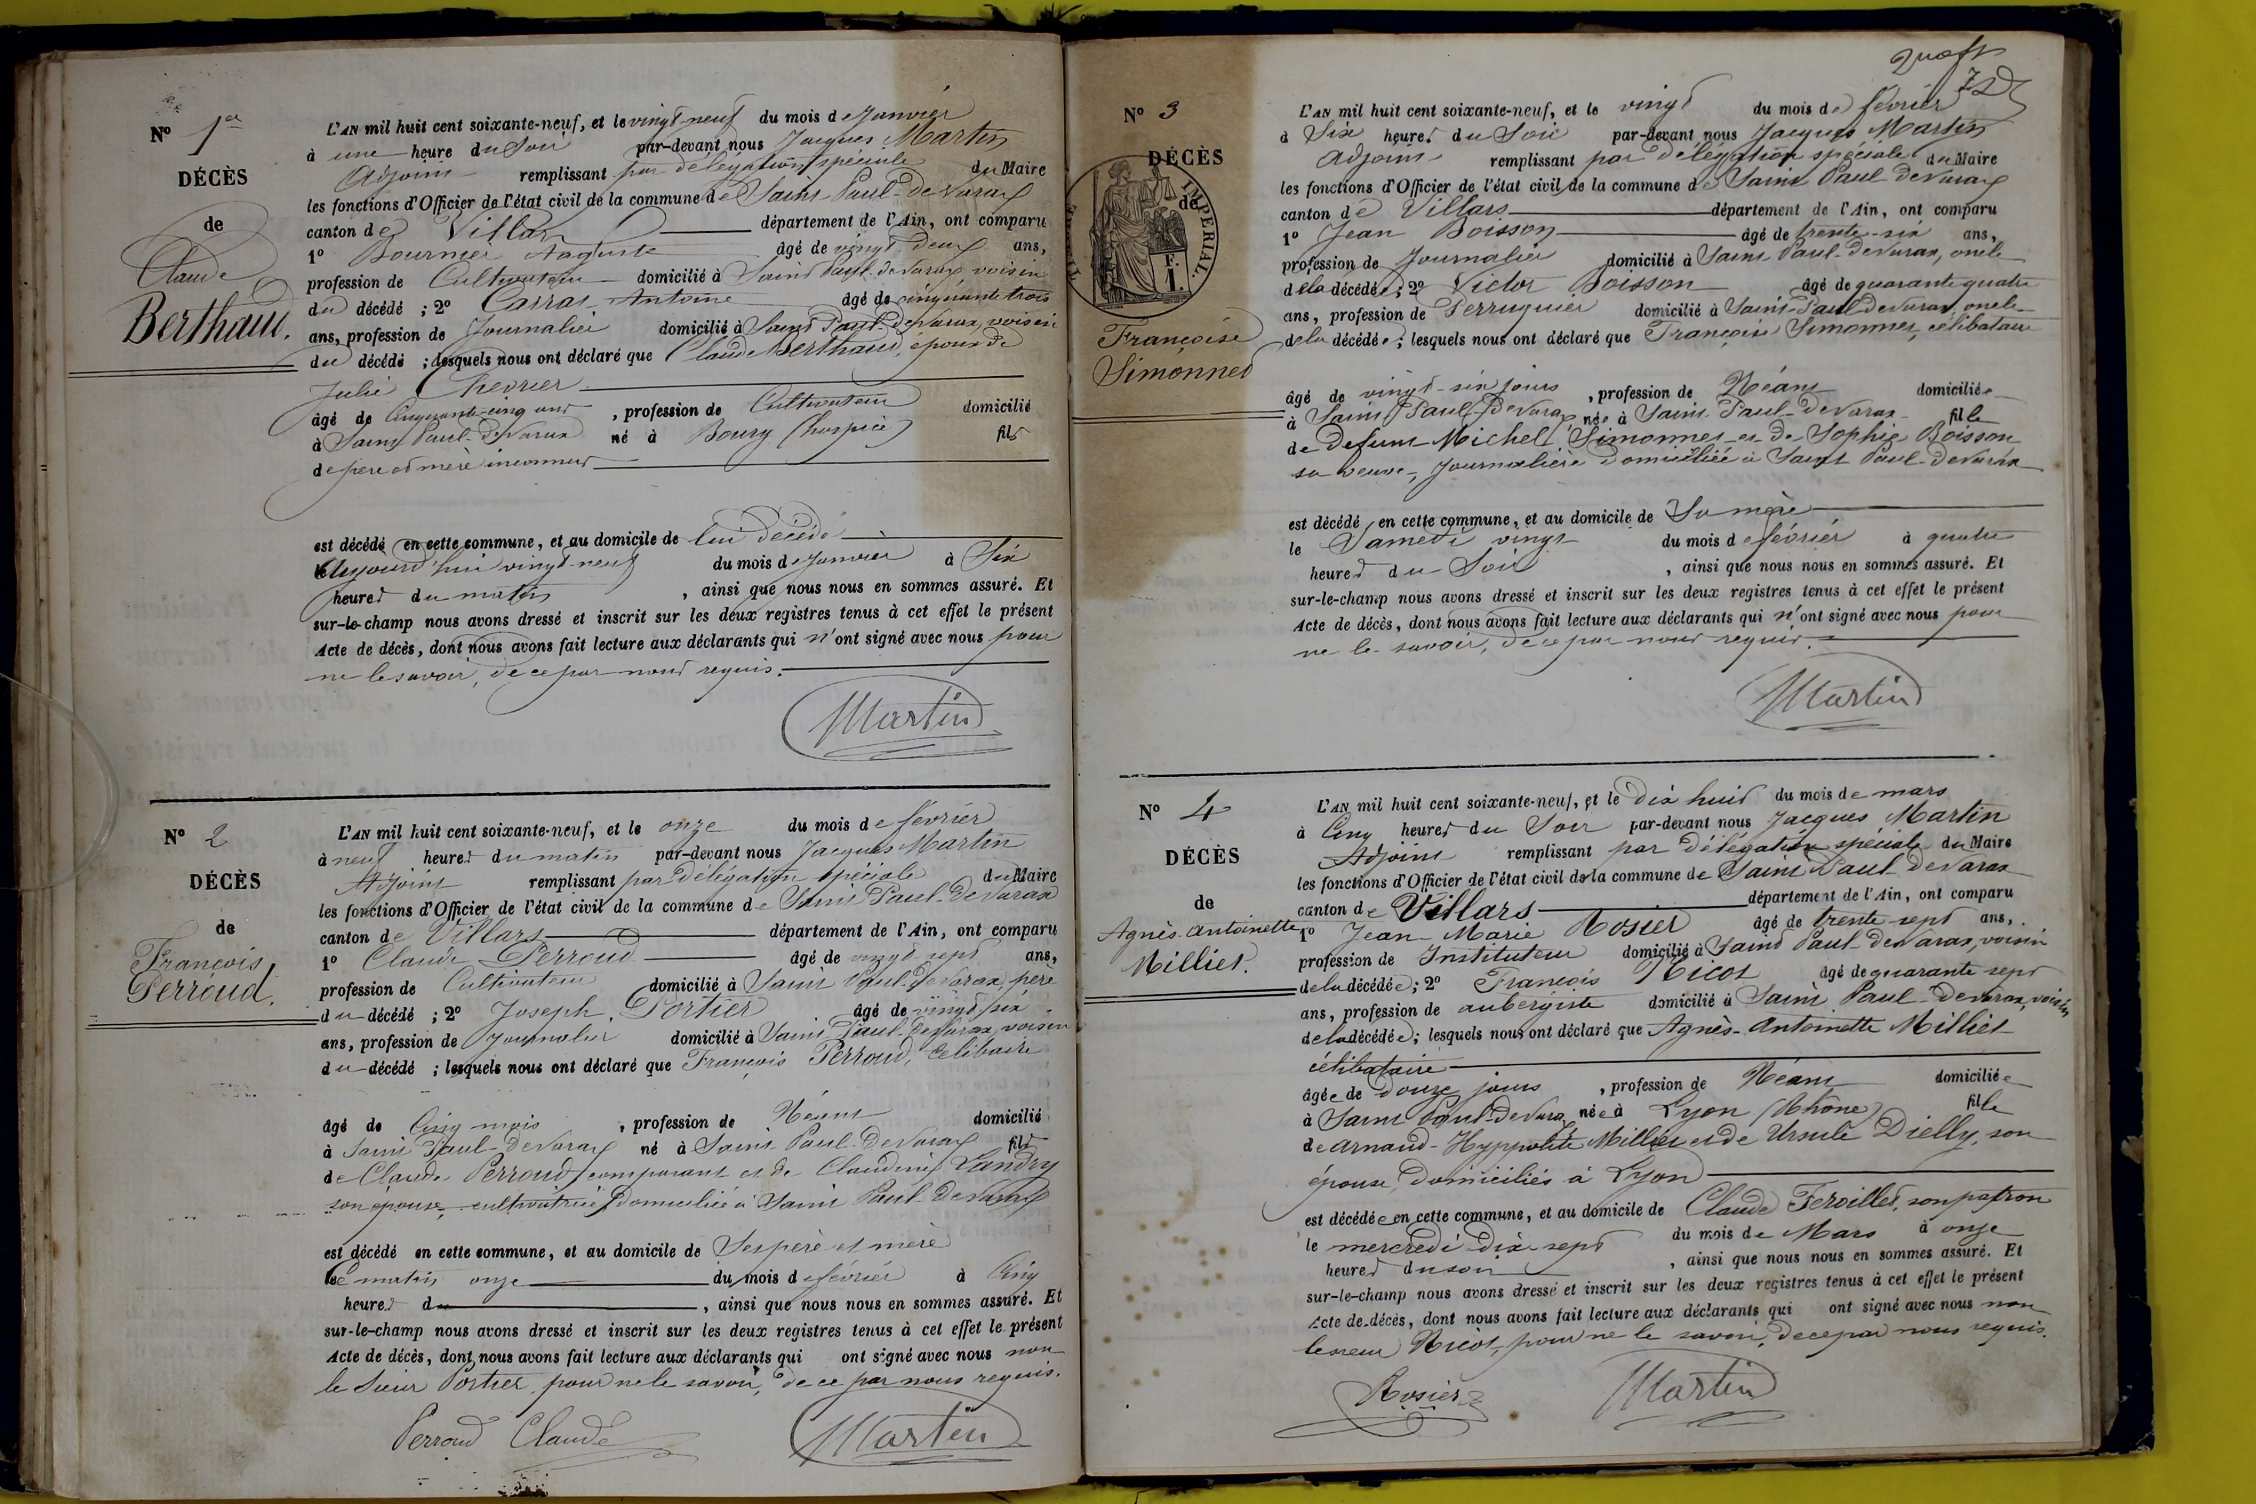 N° 1er
DÉCÈS
de
Claude
Berthaud.
L'AN mil huit cent soixante-neuf, et le vingt neuf du mois de Janvier
à une heure du Soir par-devant nous Jacques Martin
Adjoint remplissant par délégation spéciale du Maire
les fonctions d'Officier de l'état civil de la commune de Saint Paul-de Varax
canton de Villars département de l'Ain, ont comparu
1° Bournier Auguste âgé de vingt deux ans,
profession de Cultivateur domicilié à Saint Paul-de Varax voisin
du décédé ; 2° Carras Antoine âgé de cinquante trois
ans, profession de Journalier domicilié à Saint Paul-de Varax, voisin
du décédé ; lesquels nous ont déclaré que Claude Berthaud, époux de
Julie Chevrier
âgé de Cinquante-cinq ans, profession de Cultivateur domicilié
à Saint Paul-de Varax né à Bourg (hospice) fils
de père et mère inconnus
est décédé en cette commune, et au domicile de lui décédé
le Aujourd'hui vingt-neuf du mois de Janvier à Six
heures du matin, ainsi que nous nous en sommes assuré. Et
sur-le-champ nous avons dressé et inscrit sur les deux registres tenus à cet effet le présent
Acte de décès, dont nous avons fait lecture aux déclarants qui n'ont signé avec nous pour
ne le savoir, de ce par nous requis.
Martin
N° 2
DÉCÈS
de
François
Perroud.
L'AN mil huit cent soixante-neuf, et le onze du mois de février
à neuf heures du matin par-devant nous Jacques Martin
Adjoint remplissant par délégation spéciale du Maire
les fonctions d'Officier de l'état civil de la commune de Saint Paul-de Varax
canton de Villars département de l'Ain, ont comparu
1° Claude Perroud âgé de vingt sept ans,
profession de Cultivateur domicilié à Saint Paul-de Varax, père
du décédé ; 2° Joseph Portier âgé de vingt six
ans, profession de Journalier domicilié à Saint Paul-de Varax, voisin
du décédé ; lesquels nous ont déclaré que François Perroud, Célibataire
âgé de Cinq mois, profession de Néant domicilié
à Saint Paul-de Varax né à Saint Paul-de Varax fils
de Claude Perroud comparant et de Claudine Landry
son épouse, cultivatrice domiciliée à Saint Paul de Varax
est décédé en cette commune, et au domicile de Ses père et mère
le Ce matin onze du mois de février à Cinq
heures du, ainsi que nous nous en sommes assuré. Et
sur-le-champ nous avons dressé et inscrit sur les deux registres tenus à cet effet le présent
Acte de décès, dont nous avons fait lecture aux déclarants qui ont signé avec nous non
le Sieur Portier, pour ne le savoir, de ce par nous requis.
Perroud Claude Martin
72
N° 3
DÉCÈS
de
IMPÉRIAL.
F.
1.
Françoise
Simonnet
L'AN mil huit cent soixante-neuf, et le vingt du mois de février
à Six heures du Soir par-devant nous Jacques Martin
Adjoint remplissant par délégation spéciale du Maire
les fonctions d'Officier de l'état civil de la commune de Saint Paul de Varax
canton de Villars département de l'Ain, ont comparu
1° Jean Boisson âgé de trente-six ans,
profession de Journalier domicilié à Saint Paul-de Varax, oncle
de la décédée ; 2° Victor Boisson âgé de quarante quatre
ans, profession de Perruquier domicilié à Saint-Paul de Varax, oncle
de la décédée ; lesquels nous ont déclaré que Françoise Simonnet, célibataire
âgé de vingt-six jours, profession de Néant domiciliée
à Saint Paul-de Varax née à Saint Paul-de Varax fille
de Défunt Michel Simonnet et de Sophie Boisson
sa veuve, Journalière domiciliée à Saint Paul-de Varax
est décédé en cette commune, et au domicile de Sa mère
le Samedi vingt du mois de février à quatre
heures du Soir, ainsi que nous nous en sommes assuré. Et
sur-le-champ nous avons dressé et inscrit sur les deux registres tenus à cet effet le présent
Acte de décès, dont nous avons fait lecture aux déclarants qui n'ont signé avec nous pour
ne le savoir, de ce par nous requis.
Martin
N° 4
DÉCÈS
de
Agnès-Antoinette
Milliet.
L'AN mil huit cent soixante-neuf, et le dix huit du mois de mars
à Cinq heures du Soir par-devant nous Jacques Martin
Adjoint remplissant par délégation spéciale du Maire
les fonctions d'Officier de l'état civil de la commune de Saint Paul de Varax
canton de Villars département de l'Ain, ont comparu
1° Jean-Marie Rosier âgé de trente-sept ans,
profession de Instituteur domicilié à Saint Paul de Varax, voisin
de la décédée ; 2° François Nicot âgé de quarante sept
ans, profession de aubergiste domicilié à Saint Paul-de Varax, voisin
de la décédée ; lesquels nous ont déclaré que Agnès-Antoinette Milliet
célibataire
âgée de Douze jours, profession de Néant domiciliée
à Saint Paul-de Varax née à Lyon (Rhône) fille
de Arnaud-Hyppolite Milliet et de Ursule Dielly, son
épouse, domiciliés à Lyon
est décédée en cette commune, et au domicile de Claude Feroillet, son patron
le mercredi Dix-sept du mois de Mars à onze
heures du soir, ainsi que nous nous en sommes assuré. Et
sur-le-champ nous avons dressé et inscrit sur les deux registres tenus à cet effet le présent
Acte de décès, dont nous avons fait lecture aux déclarants qui ont signé avec nous non
le sieur Nicot, pour ne le savoir, de ce par nous requis.
Rosier Martin